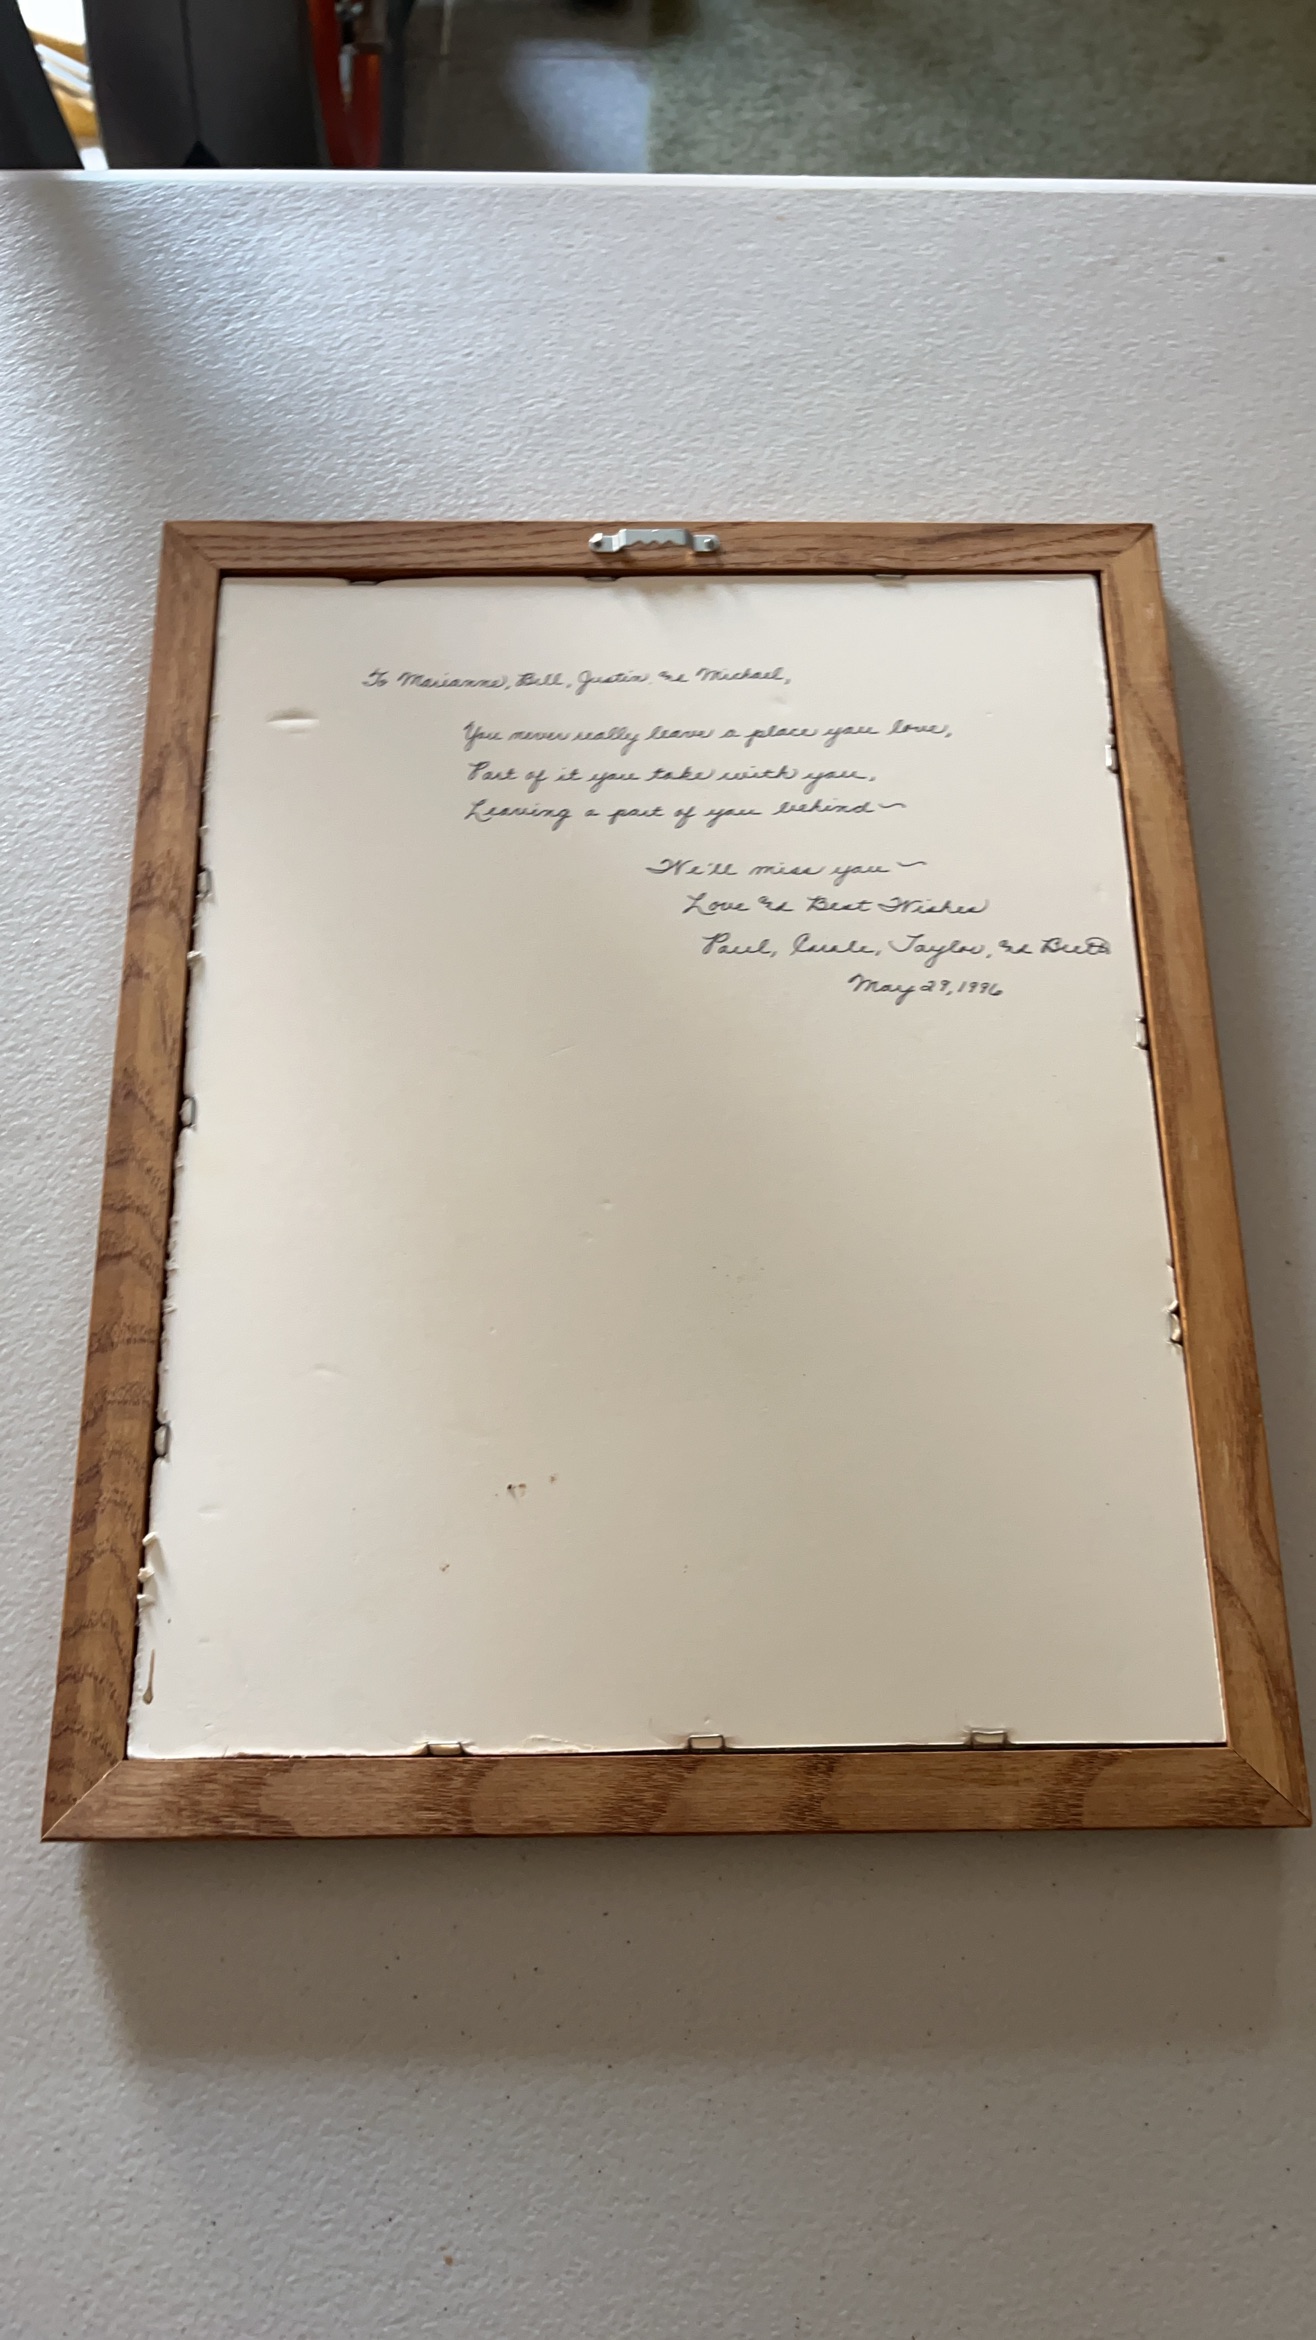 To Marianne, Bill, Justin & Michael,
You never really leave a place you love,
Part of it you take with you,
Leaving a part of you behind~
We'll miss you~
Love & Best Wishes
Paul, Carole, Taylor, &
May 29, 1996